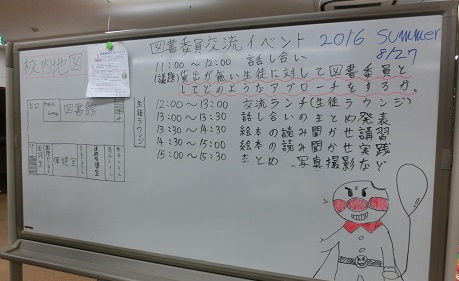 図書委員交流イベント 2016 Summer
8/27
校内地図
11:00〜12:00 話し合い
(議題)貸出が無い生徒に対して図書委員と
してどのようなアプローチをするか。
12:00〜13:00 交流ランチ(生徒ラウンジ)
13:00〜13:30 話し合いのまとめ発表
13:30〜14:30 絵本の読み聞かせ講習
14:30〜15:00 絵本の読み聞かせ実践
15:00〜15:30 まとめ、写真撮影など
図書館
生徒ラウンジ
保健室